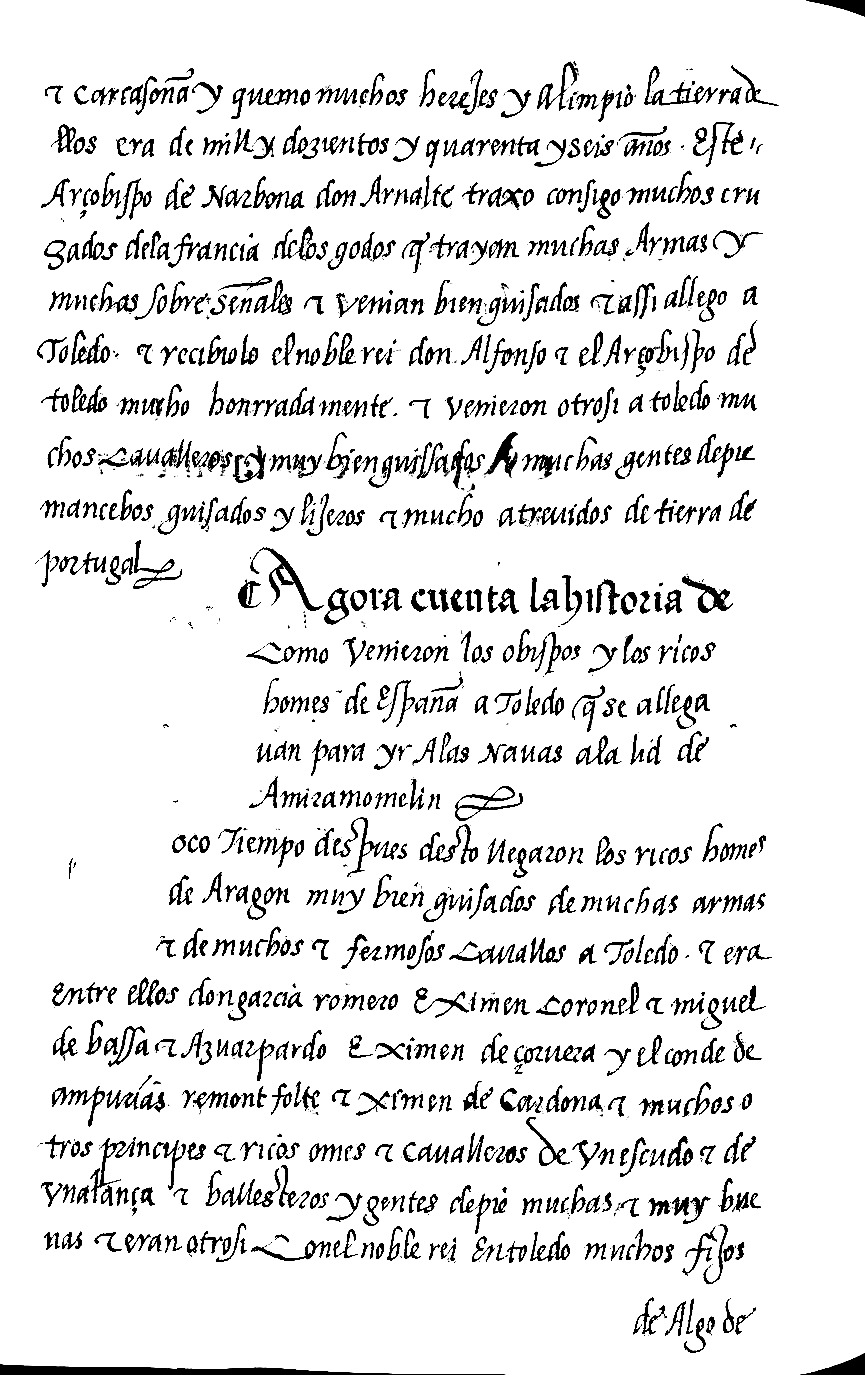 ⁊ Carcasoña y quemo muchos herejes y Alimpio la tierra de
llos era de mill y dozientos y quarenta y seis años. Este
Arçobispo de Narbona don Arnalte traxo consigo muchos cru
zados dela francia delos godos q̃ trayan muchas Armas y
muchas sobre señales ⁊ Venian bien guisados ⁊ assi allego a
Toledo. ⁊ recibiolo el noble rei don Alfonso ⁊ el Arçobispo de
toledo mucho honrradamente. ⁊ Venieron otrosi a toledo mu
chos Cavalleros y muy bien guissados muchas gentes depie
mancebos guisados y lijeros ⁊ mucho atreuidos de tierra de
portugal
Agora cuenta la historia de
Como Venieron los obispos y los ricos
homes de España a Toledo q̃ se allega
uan para yr Alas Nauas ala lid de
Amiramomelin
oco Tiempo despues desto llegaron los ricos homes
de Aragon muy bien guisados de muchas armas
⁊ de muchos ⁊ fermosos Cauallos a Toledo. ⁊ era
Entre ellos don garcia romero E Ximen Coronel ⁊ miguel
de bassa ⁊ Aznar pardo E Ximen de çoruera y el conde de
ampurias remont folte ⁊ Ximen de Cardona ⁊ muchos o
tros principes ⁊ ricos omes ⁊ Cavalleros de Vn escudo ⁊ de
Vna lança ⁊ ballesteros y gentes de pie muchas ⁊ muy bue
nas ⁊ eran otrosi Con el noble rei En toledo muchos fijos
de Algo de